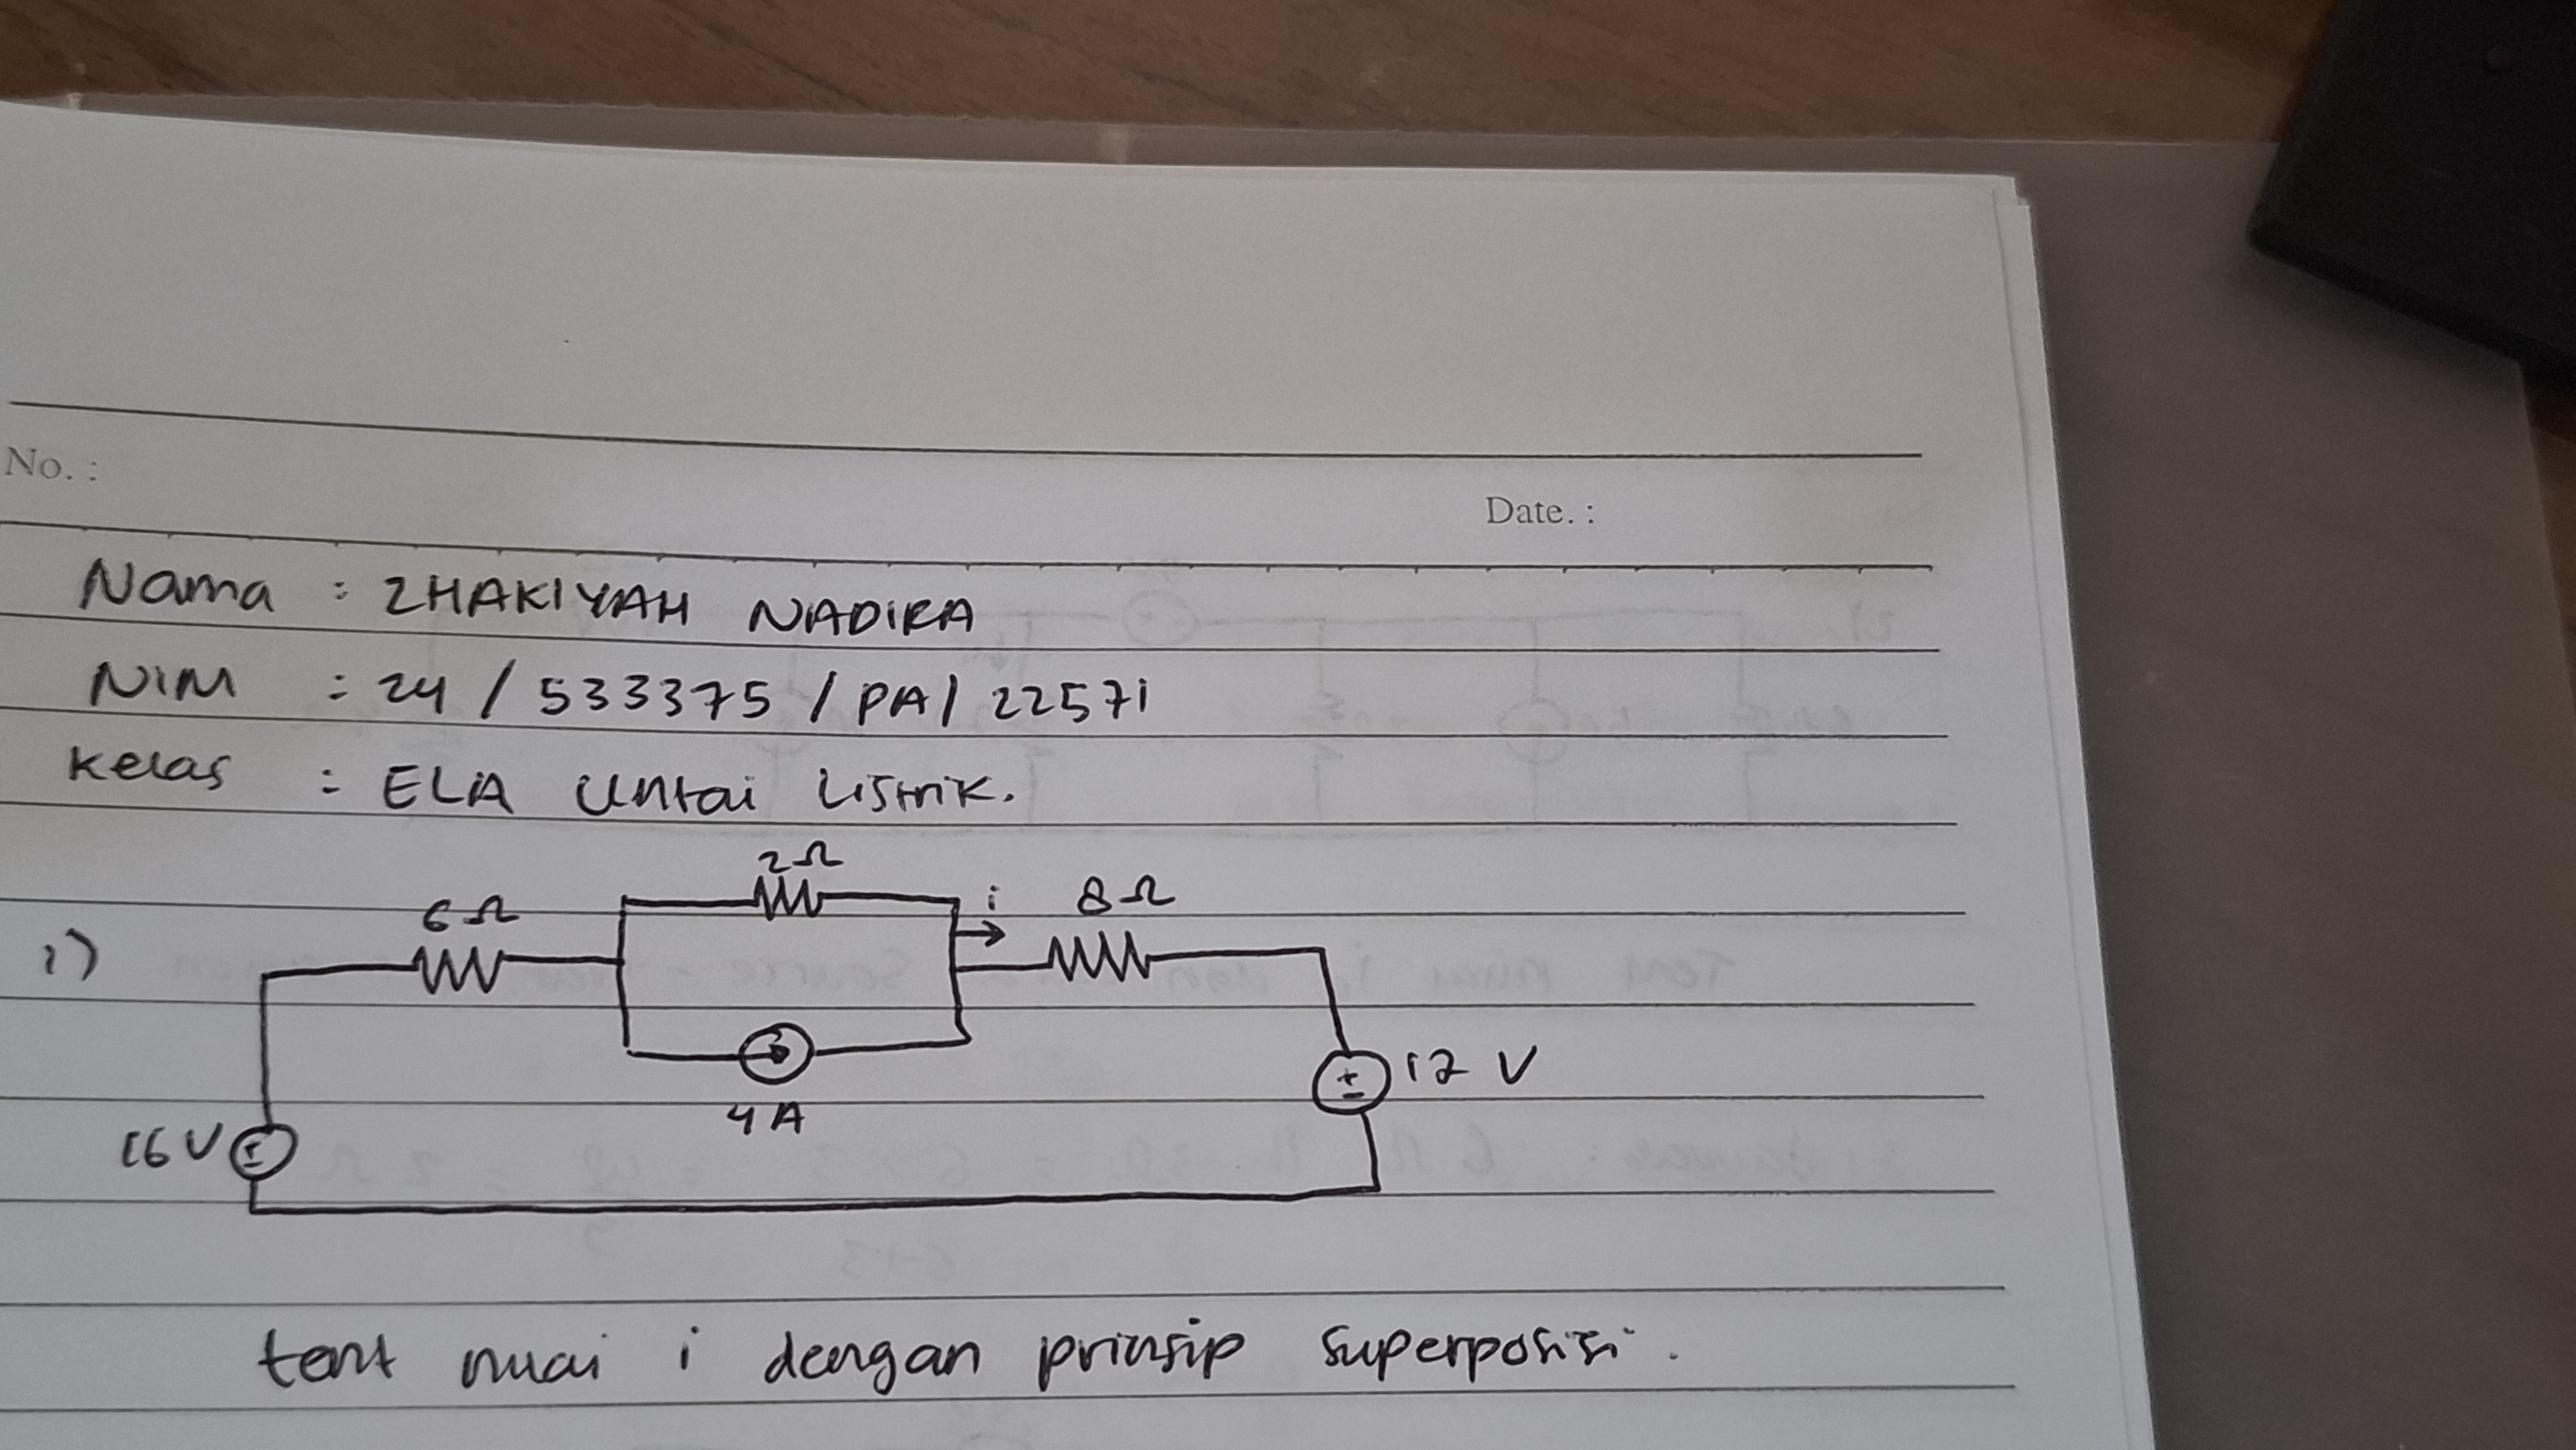 No. :
Date. :
Nama : ZHAKIYAH NADIRA
NIM : 24 / 533375 / PA / 22571
Kelas : ELA Untai Listrik.
1)
6Ω
2Ω
i
8Ω
4A
16V
+
-
12 V
+
-
tent nilai i dengan prinsip superposisi.